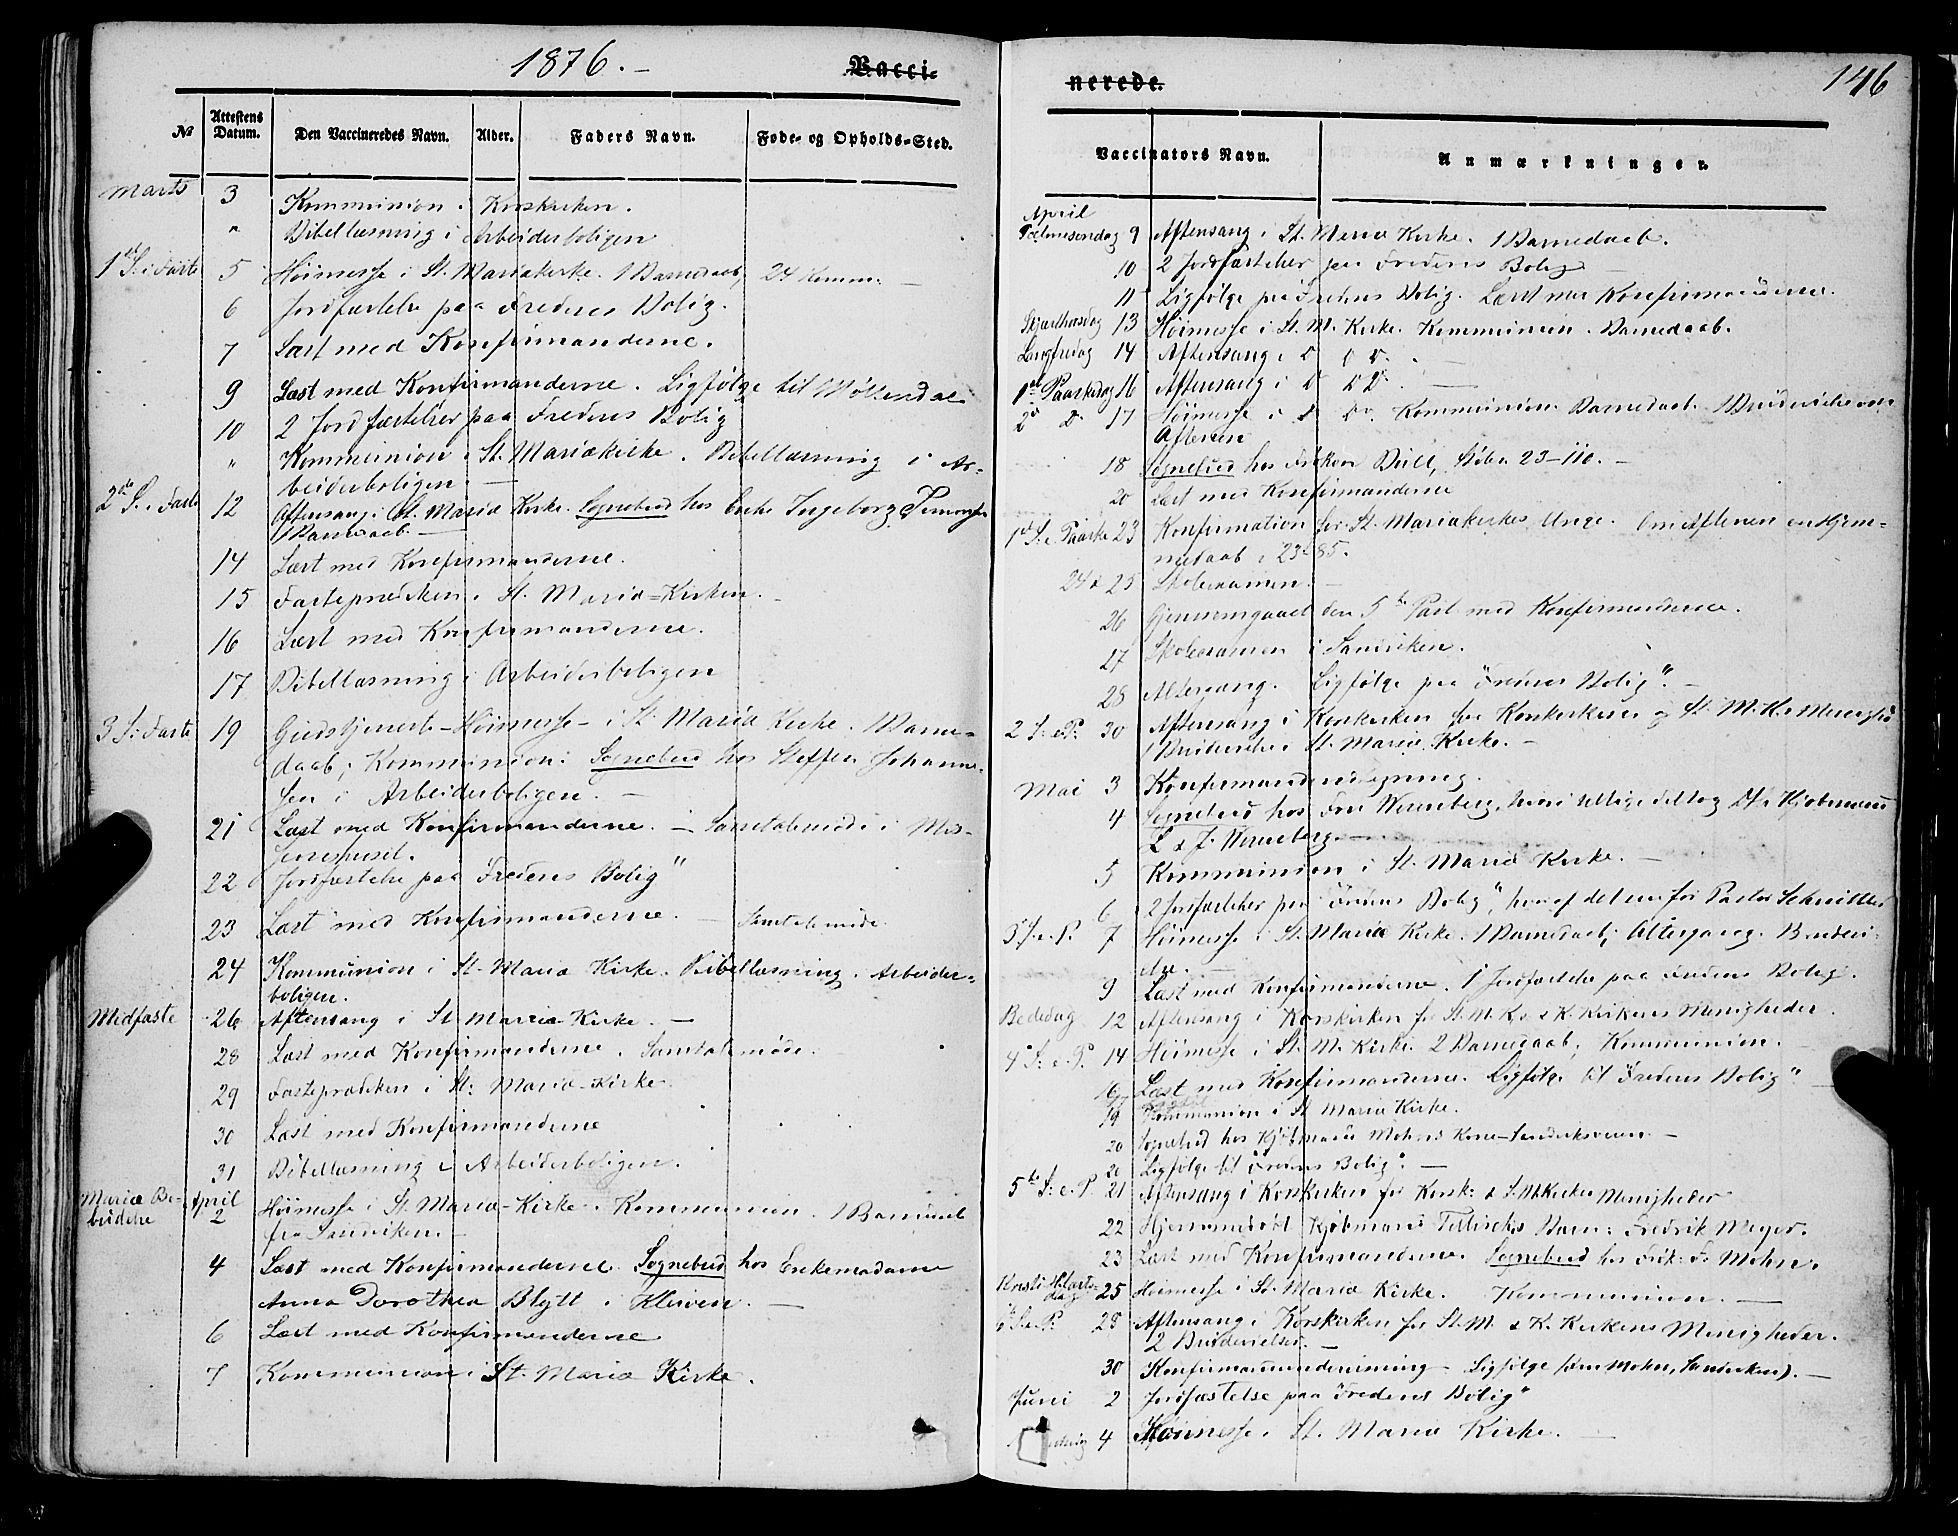 1876.
Vacci-
№ Attestens Datum. Den Vaccineredes Navn. Alder. Faders Navn. Føde- og Opholds-Sted.
Marts 3 Kommunion i Korskirken.
" Bibellæsning i Arbeiderboligen
1ste S. i Faste 5 Høimesse i St. Mariakirke. 1 Barnedaab, 24 Komm.
6 Jordfæstelse paa Fredens Bolig.
7 Læst med Konfirmanderne.
9 Læst med Konfirmanderne. Ligfølge til Møllendal
10 2 Jordfæstelser paa Fredens Bolig
" Kommunion i St. Mariakirke. Bibellæsning i Ar-
beiderboligen. —
2den S. i Faste 12 Aftensang i St. Maria Kirke. Sognebud hos Enke Ingeborg
1 Barnedaab. —
14 Læst med Konfirmanderne.
15 Fasteprædiken i St. Maria-Kirken.
16 Læst med Konfirmanderne.
17 Bibellæsning i Arbeiderboligen
3 S. i Faste 19 Gudstjeneste - Høimesse - i St. Maria Kirke. 1 Barne-
daab; Kommunion: Sognebud hos Steffen Johanne-
sen i Arbeiderboligen. —
21 Læst med Konfirmanderne. — Samtalemøde i Mis-
22 Jordfæstelse paa "Fredens Bolig"
23 Læst med Konfirmanderne. — Samtalemøde.
24 Kommunion i St. Maria Kirke. Bibellæsning i Arbeider-
boligen.
Midfaste 26 Aftensang i St Maria Kirke. —
28 Læst med Konfirmanderne. Samtalemøde.
29 Fasteprædiken i St. Maria-Kirke
30 Læst med Konfirmanderne
31 Bibellæsning i Arbeiderboligen.
Mariæ Be-
budelse April 2 Høimesse i St. Maria-Kirke. Kommunion. 1
fra Sandviken. —
4 Læst med Konfirmanderne. Sognebud hos Enkemadame
Anna Dorothea Blytt i Kleiven. —
6 Læst med Konfirmanderne
7 Kommunion i St. Maria Kirke.
nerede.
146
Vaccinators Navn. Anmærkninger.
April
Palmesøndag 9 Aftensang i St. Maria Kirke. 1 Barnedaab.
10 2 Jordfæstelser paa Fredens Bolig
11 Ligfølge paa Fredens Bolig. Læst med Konfirmanderne.
Skjærthorsdag 13 Høimesse i St. M. Kirke. Kommunion. Barnedaab.
Langfredag 14 Aftensang i D D D. —
1ste Paaskedag 16 Aftensang i D D D. —
2den D. 17 Høimesse i D Do. Kommunion. Barnedaab. 1 Brudevielse om
Aftenen
18 Sognebud hos Frøken Büll, 23-110. —
20 Læst med Konfirmanderne
1ste S. e. Paaske 23 Konfirmation for St. Mariakirkes Unge. Om Aftenen en Hjem-
medaab i 23-85.
24 & 25 Skoleexamen. —
26 Gjennemgaaet den 5te Part med Konfirmanderne.
27 Skoleexamen i Sandviken.
28 Altergang. Ligfølge paa "Fredens Bolig". —
2 S. e. P. 30 Aftensang i Korskirken for Korskirkens og St. M. K.s Menigheder
1 Brudevielse i St. Maria Kirke. —
Mai 3 Konfirmandindtegning.
4 Sognebud hos Fru Wenneberg, hvori tillige deltog D'Hr. Kjøbmænd
L & J. Wenneberg. —
5 Kommunion i St. Maria Kirke. —
6 2 Jordfæstelser paa "Fredens Bolig", hvoraf det ene for Pastor
3 S. e. P. 7 Høimesse i St. Maria Kirke. 1 Barnedaab; Altergang. Brudevi-
else. —
9 Læst med Konfirmanderne. 1 Jordfæstelse paa Fredens Bolig.
Bededag 12 Aftensang i Korskirken for St. M. K. & K. Kirkens Menigheder.
4 S. e. P. 14 Høimesse i St. M. Kirke. 2 Barnedaab; Kommunion.
16 Læst med Konfirmanderne. Ligfølge til "Fredens Bolig". —
19 Kommunion i St Maria Kirke.
20 Sognebud hos Kjøbmand Mohns Kone - Sandviksveien. —
20 Ligfølge til "Fredens Bolig". —
5te S. e. P. 21 Aftensang i Korskirken for Korsk: & S. M. Kirkes Menigheder
22 Hjemmedøbt Kjøbmand Barn: Fredrik Meyer.
23 Læst med Konfirmanderne. Sognebud hos Frk: F. Mohn.
Kristi Himlfarts-
dag 25 Høimesse i St. Maria Kirke. Kommunion. —
6 S. e. P. 28 Aftensang i Korskirken for St. M. & K. Kirkens Menigheder.
2 Brudevielser. —
30 Konfirmandundervisning - Ligfølge (Mohn, Sandviken). —
Juni 2 Jordfæstelse paa "Fredens Bolig"
4 Høimesse i St. Maria Kirke. —